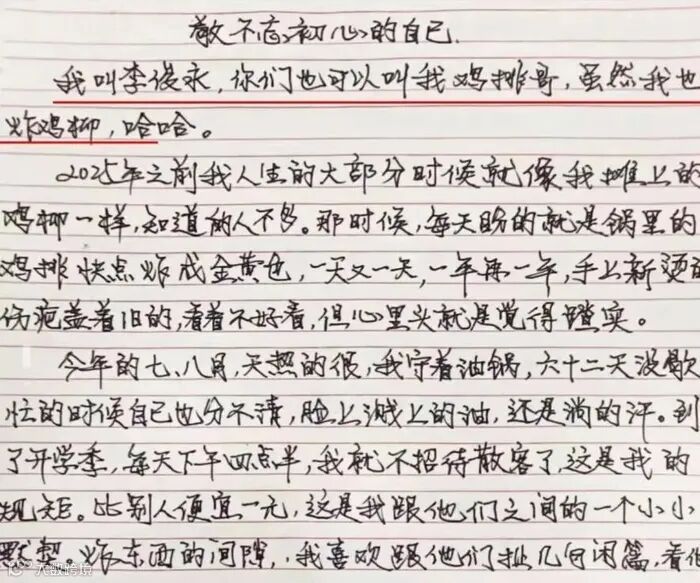 敬不忘初心的自己.
我叫李俊永,你们也可以叫我鸡排哥,虽然我也
炸鸡柳,哈哈。
2025年之前我人生的大部分时候就像我摊上的
鸡柳一样,知道的人不多。那时候,每天盼的就是锅里的
鸡排快点炸成金黄色,一天又一天,一年再一年,手上新烫
伤疤盖着旧的,看着不好看,但心里头就是觉得踏实。
今年的七、八月,天热的很,我守着油锅,六十二天没歇
忙的时候自己也分不清,脸上溅上的油,还是淌的汗。到
了开学季,每天下午四点半,我就不招待散客了,这是我的
规矩。比别人便宜一元,这是我跟他们之间的一个小小
默契。炸东西的间隙,我喜欢跟他们扯几句闲篇,看他
大数跨境